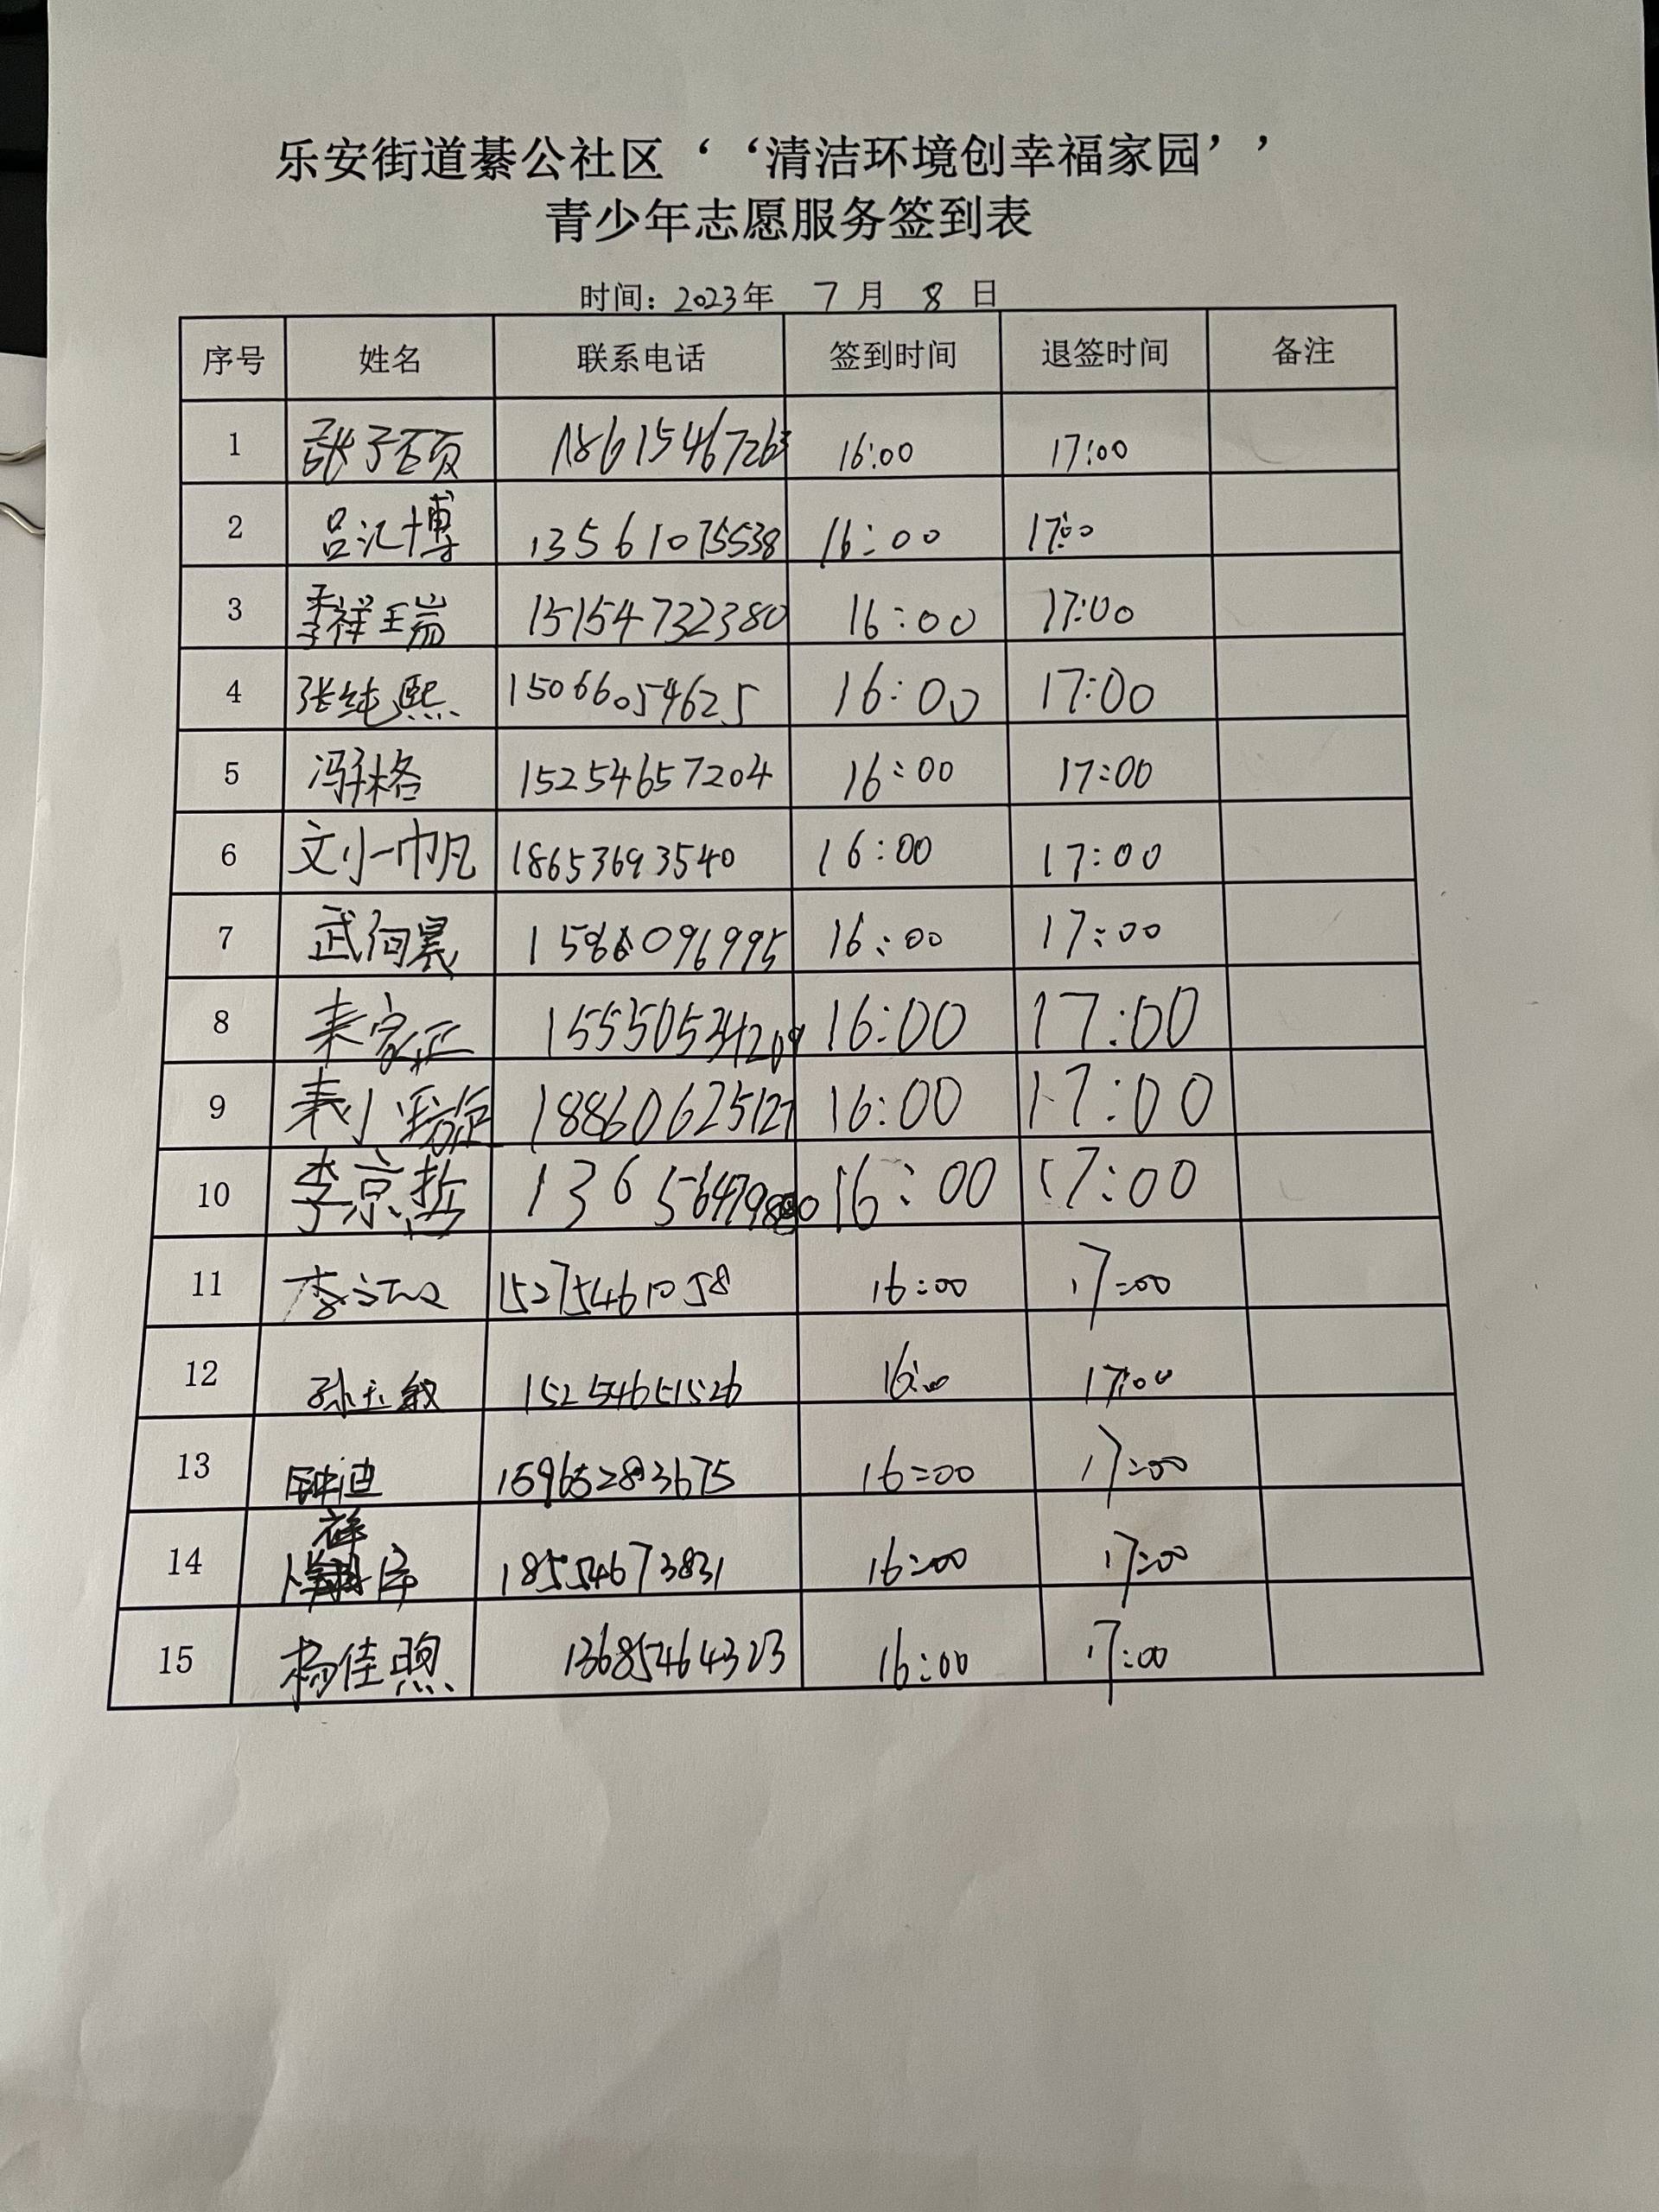 乐安街道綦公社区‘‘清洁环境创幸福家园’’
青少年志愿服务签到表
时间：2023年 7 月 8 日
序号 姓名 联系电话 签到时间 退签时间 备注
1 张子硕 1861546726 16:00 17:00
2 吕汇博 13561075538 16:00 17:00
3 李祥瑞 15154732380 16:00 17:00
4 张纯熙 15066054625 16:00 17:00
5 冯梓格 15254657204 16:00 17:00
6 文小帆 18653693540 16:00 17:00
7 武向晨 16:00 17:00
8 家正 16:00 17:00
9 18860625127 16:00 17:00
10 李京哲 16:00 17:00
11 李 15275461058 16:00 17:00
12 孙玉敏 15254651526 16:00 17:00
13 钟迪 15965283675 16:00 17:00
14 祥 18554673831 16:00 17:00
15 杨佳煦 13685464323 16:00 17:00